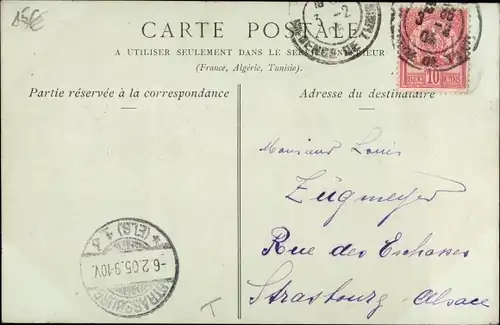 CARTE POSTALE
A UTILISER SEULEMENT DANS LE SERVICE INTÉRIEUR
(France, Algérie, Tunisie).
Partie réservée à la correspondance
Adresse du destinataire
10
Monsieur Louis
Zügmeyer
Rue des Echasses
Strasbourg Alsace
STRASSBURG
* (ELS) 4 b
-6.2.05.9-10V.
T